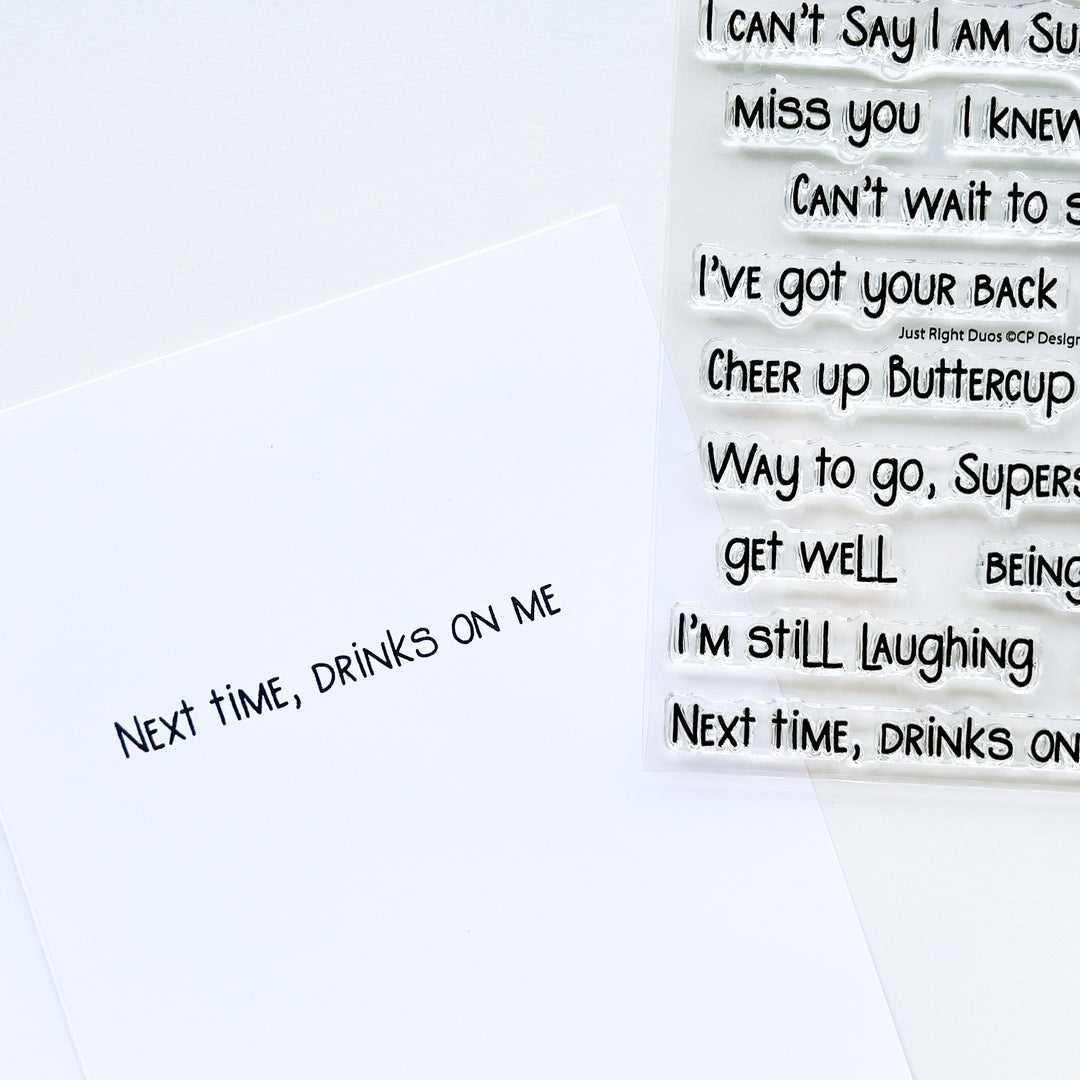 I can't Say I am
miss you
I knew
Can't wait to
I've got your back
Just Right Duos ©CP Design
Cheer up Buttercup
Way to go,
get well
being
I'm still Laughing
Next time, drinks on
Next time, drinks on me